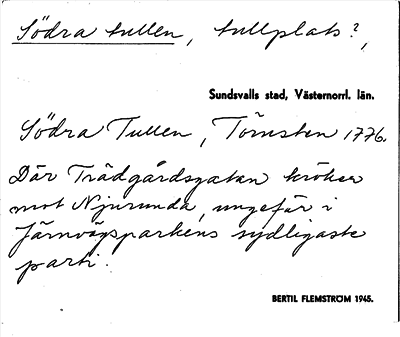 Södra tullen, tullplats?,
Sundsvalls stad, Västernorrl. län.
Södra Tullen, Törnsten 1776.
Där Trädgårdsgatan kröker
mot Njurunda, ungefär i
Järnvägsparkens sydligaste
parti.
BERTIL FLEMSTRÖM 1945.